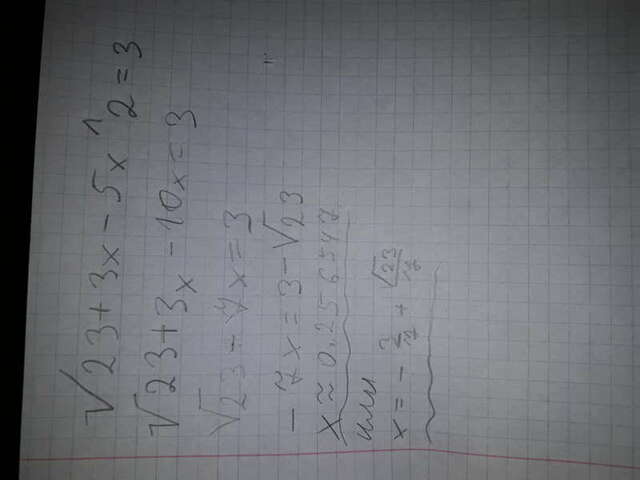 √23+3x-5x^2=3
√23+3x-10x=3
√23-7x=3
-7x=3-√23
x≈0.256547
или
x=-3/7+√23/7